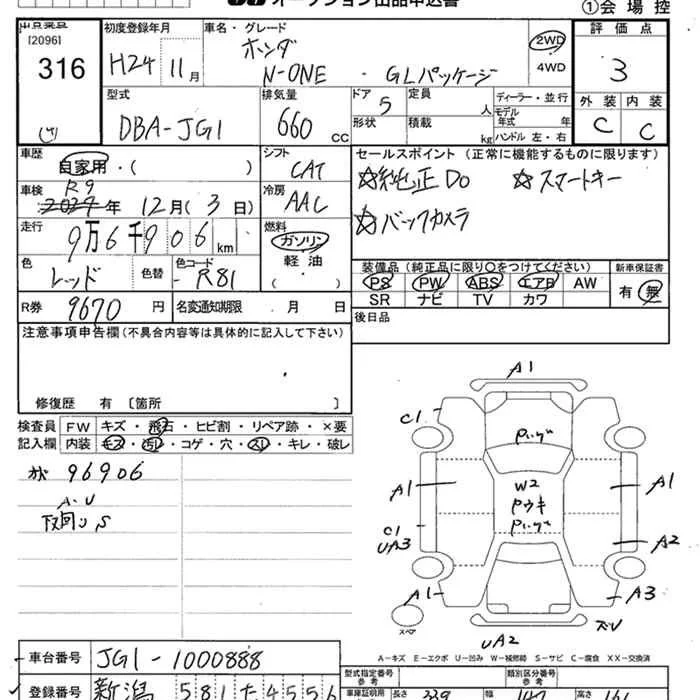 オークション出品申込書
①会場控
[2096]
316
初度登録年月
H24 11月
車名・グレード
ホンダ
N-ONE ・ GLパッケージ
2WD
4WD
評価点
3
外装 内装
C C
型式
DBA-JG1
排気量
660 CC
ドア 5
定員 人
形状
積載 kg
ディーラー・並行
モデル年式 年
ハンドル 左・右
車歴
自家用・( )
シフト
CAT
セールスポイント(正常に機能するものに限ります)
☆純正Do ☆スマートキー
☆バックカメラ
車検
R9
2027年 12月(3日)
冷房
AAC
走行
9万6千906km
燃料
ガソリン
軽・油
色
レッド
色替
色コード
R81
装備品(純正品に限り○をつけてください)
PS PW ABS エアB AW
SR ナビ TV カワ
新車保証書
有 無
R券 9670円
名変通知期限 月 日
後日品
注意事項申告欄(不具合内容等は具体的に記入して下さい)
修復歴 有〔箇所 〕
検査員記入欄
FW キズ・飛石・ヒビ割・リペア跡・×要
内装 キズ・汚レ・コゲ・穴・スレ・キレ・破レ
96906
A.U
下回りS
A1
C1
Pハゲ
A1
W2
Pウキ
Pハゲ
A1
C1
UA3
A2
A1
A3
スペア
UA2
A-キズ E-エクボ U-凹み W-補修跡 S-サビ C-腐食 XX-交換済
車台番号
JG1-1000888
型式指定番号
参考
類別区分番号
参考
登録番号
新潟 581 た 4556
車庫証明用
長さ 339
幅 147
高さ 161